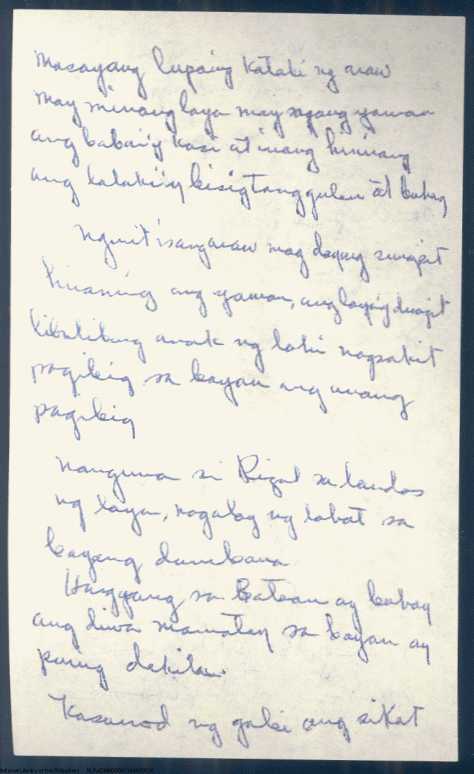 Masayang lupaing katabi ng araw
may minanglaya may ngang yaman
ang babai'y kasi at inang hinirang
ang lalaki'y bisig tanggulan at buhay
Nguit isang araw mag
kinaning ang yaman, ang layaý dinagit
libulibung anak ng lahi nagsakit
pagibig sa bayan ang unang
pagibig
Nanguna si Rizal sa landas
ng laya, nagalay ng lahat sa
bayang dambana
Hanggang sa Bataan ay buhay
ang diwa mamatay sa bayan ay
puring dakila.
Kasunod ng gabi ang sikat